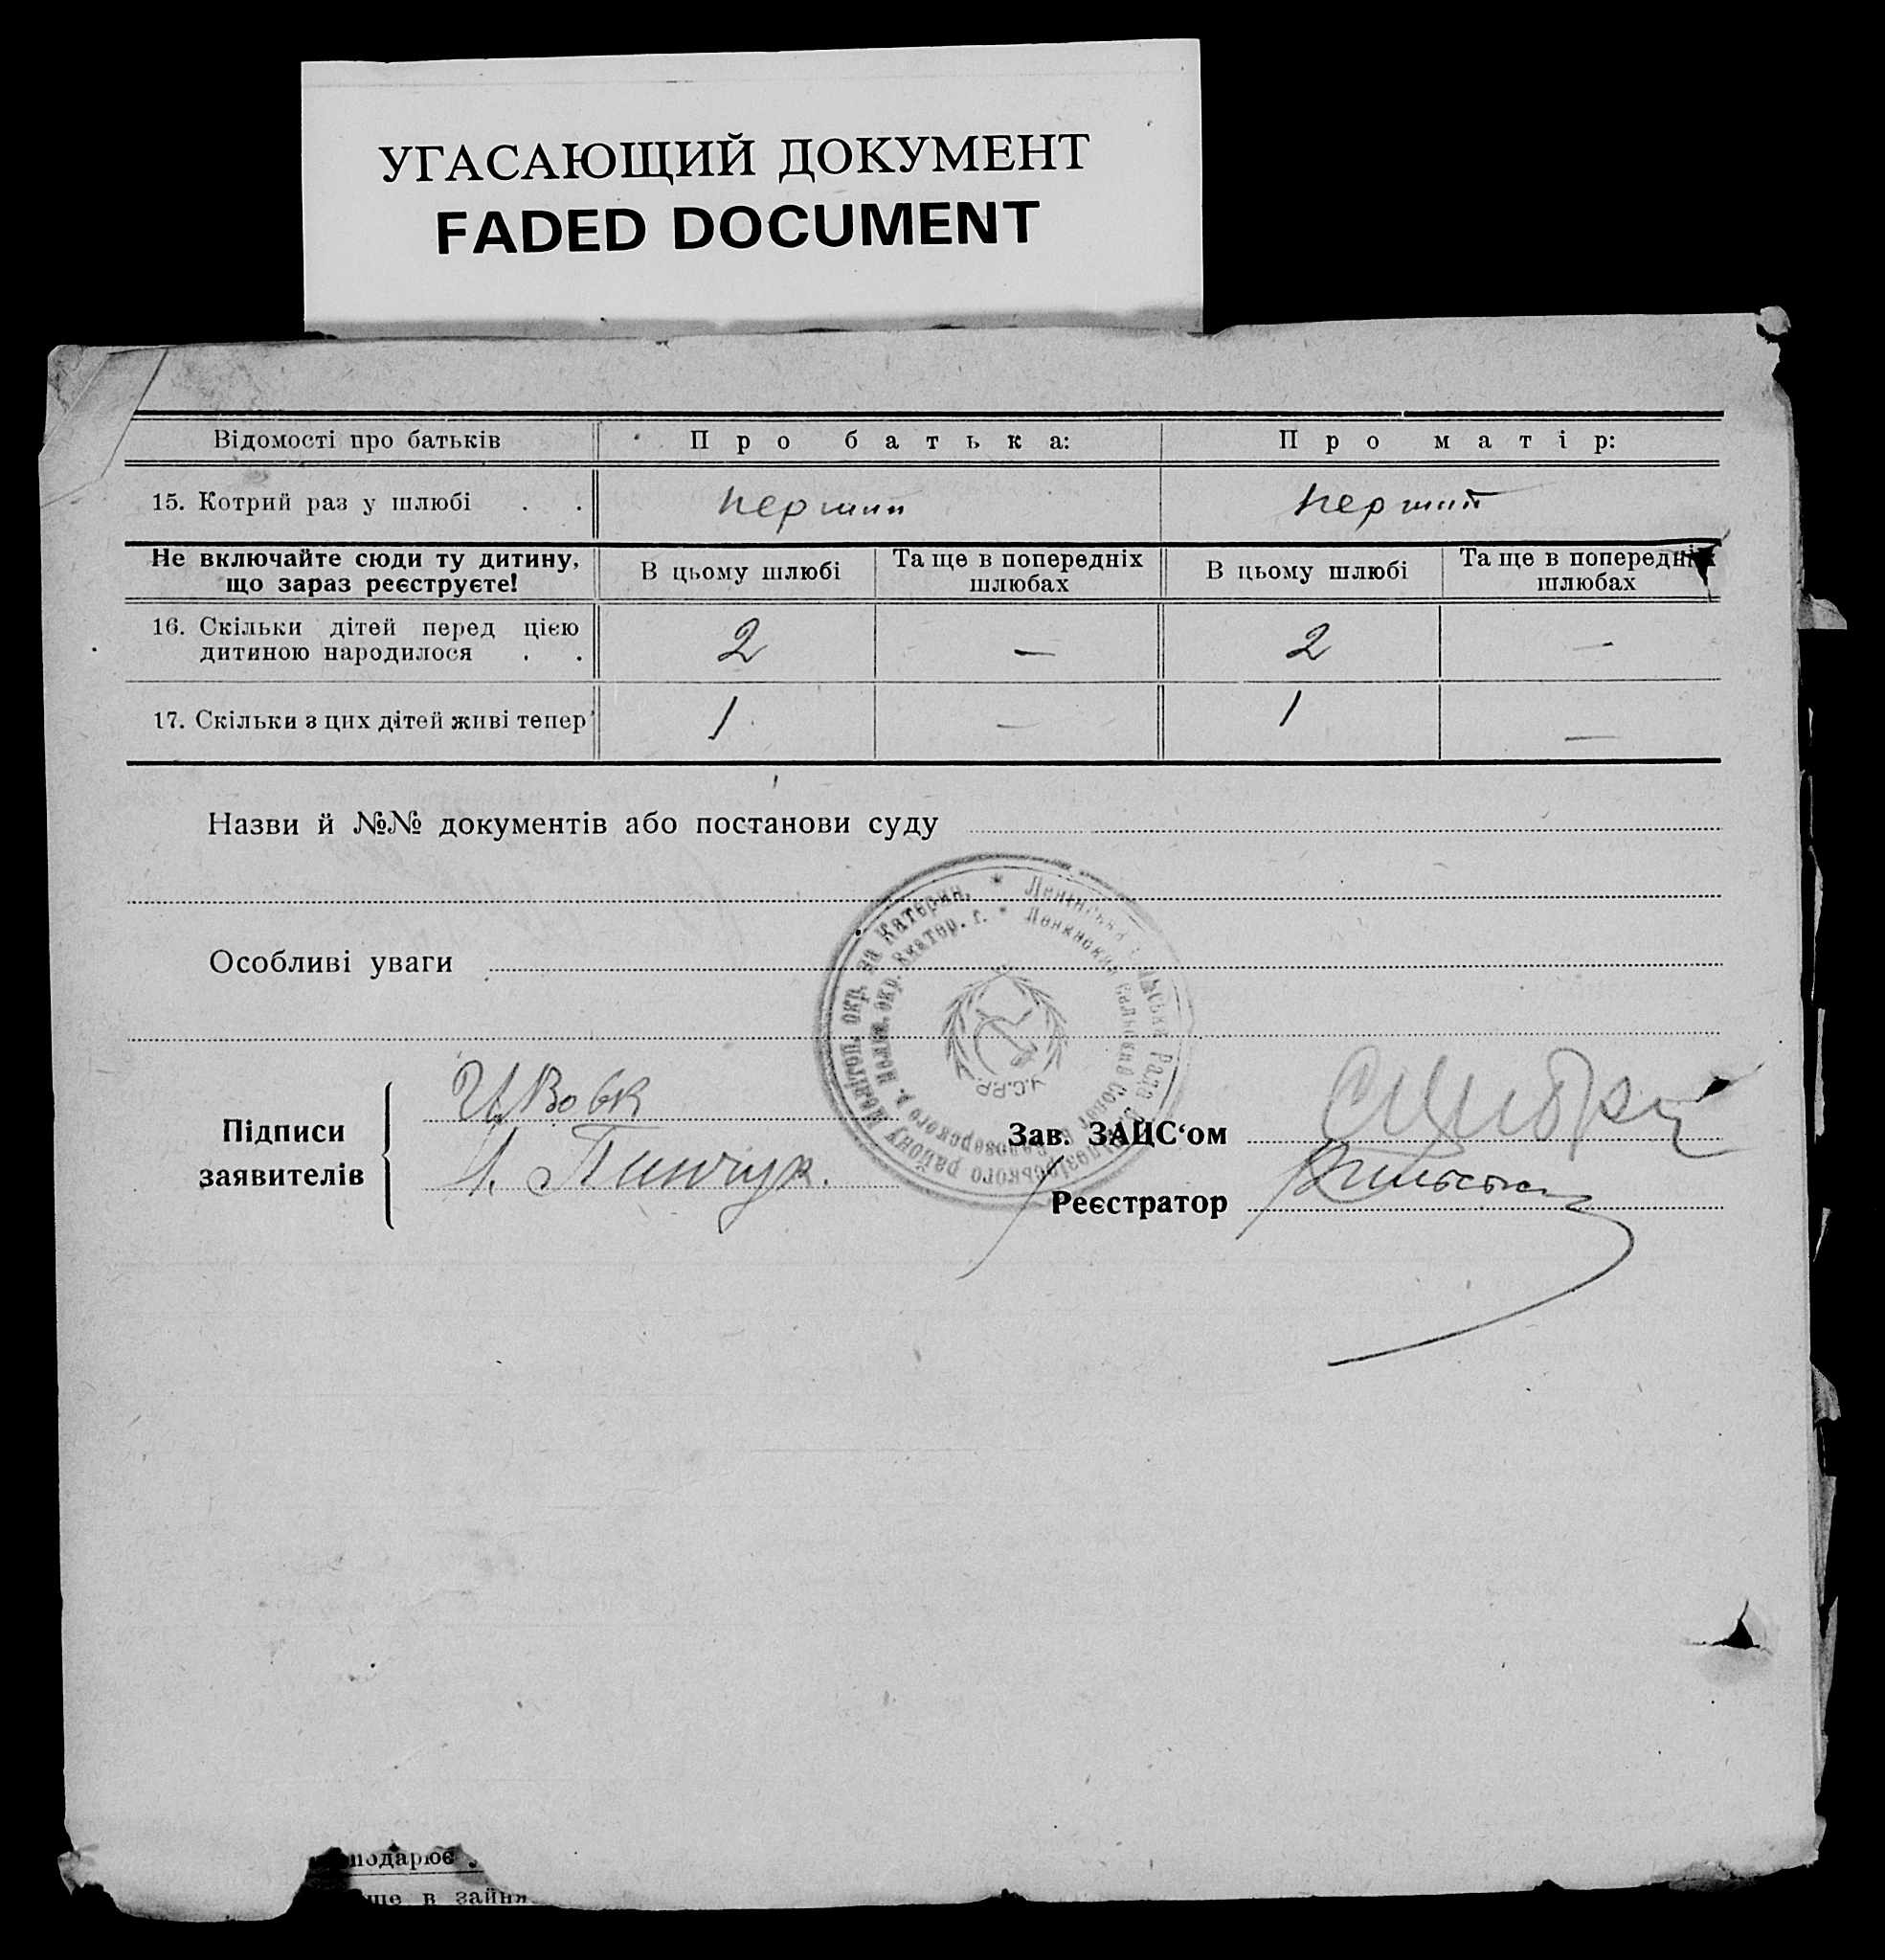 УГАСАЮЩИЙ ДОКУМЕНТ
FADED DOCUMENT
Відомості про батьків Про батька: Про матір:
15. Котрий раз у шлюбі . . перший перший
Не включайте сюди ту дитину, що зараз реєструєте! В цьому шлюбі Та ще в попередніх шлюбах В цьому шлюбі Та ще в попередніх шлюбах
16. Скільки дітей перед цією
дитиною народилося . . 2 — 2 —
17. Скільки з цих дітей живі тепер 1 — 1 —
Назви й №№ документів або постанови суду
Особливі уваги
Підписи
заявителів
Вовк
Пинчук.
Зав. ЗАЦС‘ом
Реєстратор
Ленінська Рада
району Мелітоп. окр. на Катерин.
Мелит. окр. Екатер. г.
У.С.Р.Р.
подарює
ще в зайня